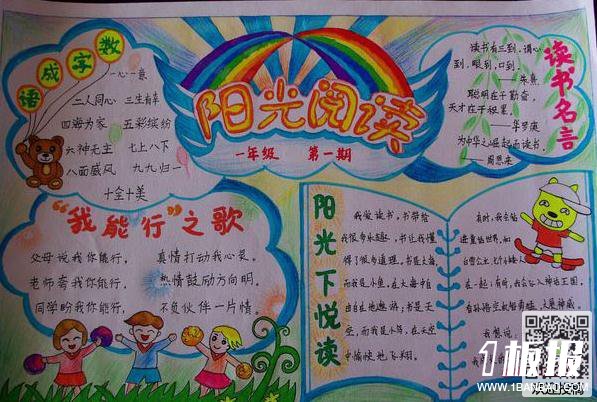 数字成语
一心一意
二人同心 三生有幸
四海为家 五彩缤纷
六神无主 七上八下
八面威风 九九归一
十全十美
阳光阅读
一年级 第一期
读书名言
读书有三到，谓心
到，眼到，口到。
——朱熹
聪明在于勤奋，
天才在于积累。
——华罗庚
为中华之崛起而读书。
——周恩来
“我能行”之歌
父母说我你能行， 真情打动我心灵。
老师夸我你能行， 热情鼓励方向明。
同学盼我你能行， 不负伙伴一片情。
阳光下悦读
我爱读书，书带给
我很多乐趣，书让我懂
得了很多道理。书是大海
而我是小鱼，在大海中自
由自在地遨游；书是天
空，而我是小鸟，在天空
中愉快地飞翔。
有时，我会钻
进童话世界，和
白雪公主、七个小矮人
在一起；有时，我会公入神话王国，
看孙悟空机智勇敢
我想说
板报
WWW.1BANBAO.COM
欢迎投稿